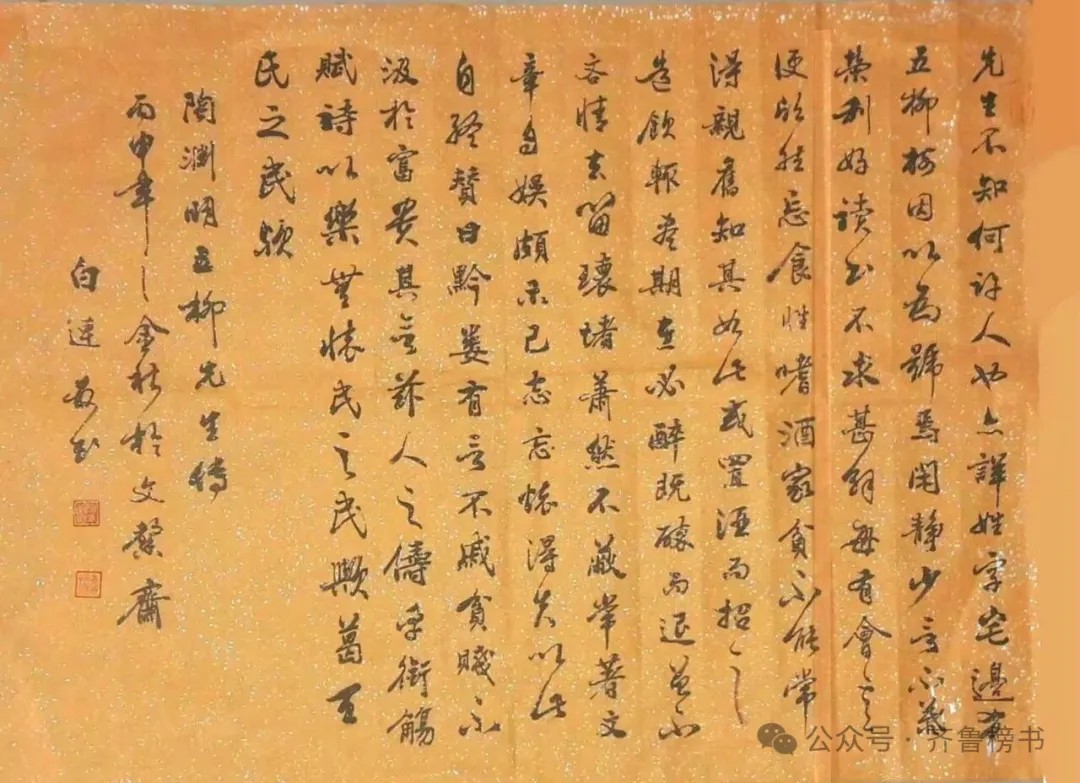 先生不知何许人也亦詳姓字宅邊有
五柳樹因以為號焉闲静少言不慕
榮利好讀书不求甚解每有會意
便欣然忘食性嗜酒家貧不能常
得親舊知其如此或置酒而招之
造飲輒盡期在必醉既醉而退曾不
吝情去留環堵蕭然不蔽常著文
章自娛頗示己志忘懷得失以此
自終贊曰黔婁有言不戚貧賤不
汲於富貴其言兹人之儔乎銜觴
賦詩以樂無懷民之民歟葛天
氏之民歟
陶淵明五柳先生傳
丙申年之金秋於文馨齋
白連敏书
公众号 · 齐鲁榜书